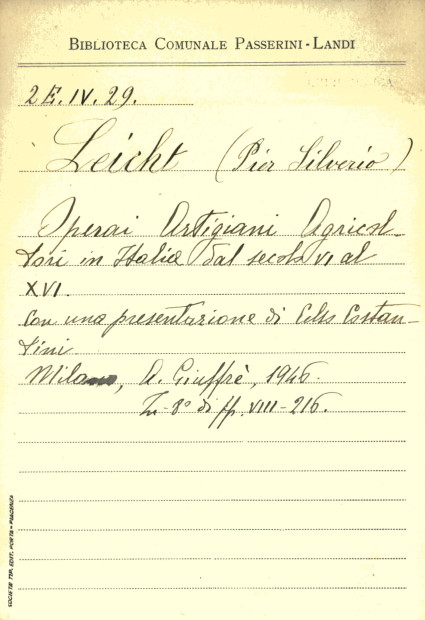 BIBLIOTECA COMUNALE PASSERINI-LANDI
2E.IV.29.
Leicht (Pier Silverio)
Operai Artigiani Agricol-
tori in Italia dal secolo VI al
XVI.
Con una presentazione di Celso Costan-
tini
Milano, A. Giuffrè, 1946.
In-8° di pp. VIII-216.
SOCIETÀ TIP. EDIT. PORTA - PIACENZA